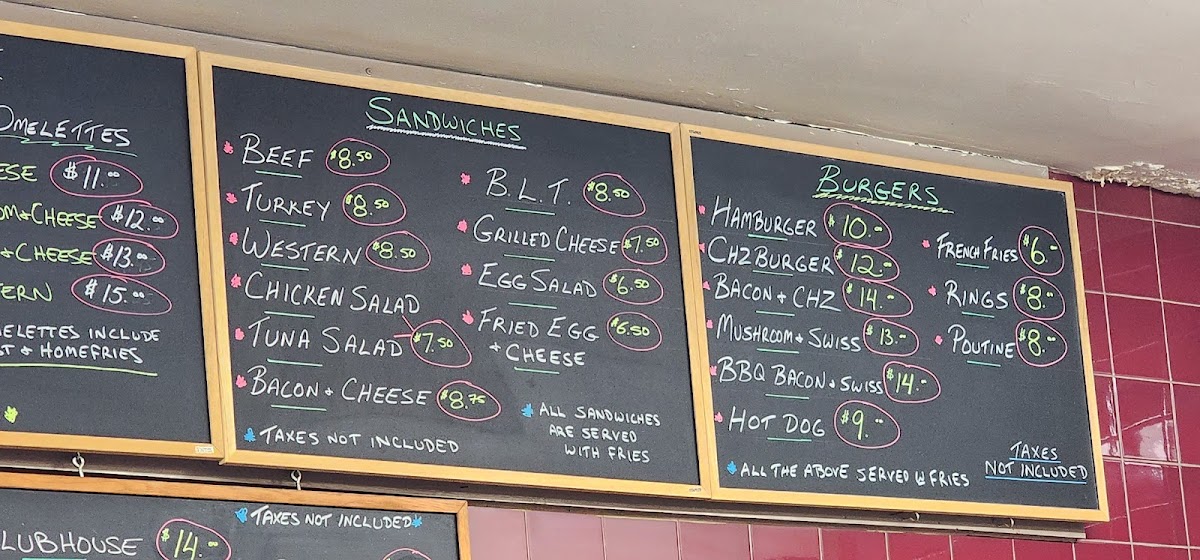 OMELETTES
ESE $11.00
OM & CHEESE $12.00
& CHEESE $13.00
ERN $15.00
ELETTES INCLUDE
ST & HOMEFRIES
SANDWICHES
BEEF $8.50
TURKEY $8.50
WESTERN $8.50
CHICKEN SALAD
TUNA SALAD $7.50
BACON & CHEESE $8.75
TAXES NOT INCLUDED
B.L.T. $8.50
GRILLED CHEESE $7.50
EGG SALAD $6.50
FRIED EGG $6.50
& CHEESE
ALL SANDWICHES
ARE SERVED
WITH FRIES
BURGERS
HAMBURGER $10.--
CHZ BURGER $12.--
BACON & CHZ $14.--
MUSHROOM & SWISS $13.--
BBQ BACON & SWISS $14.--
HOT DOG $9.00
ALL THE ABOVE SERVED W FRIES
FRENCH FRIES $6.--
RINGS $8.--
POUTINE $8.--
TAXES
NOT INCLUDED
TAXES NOT INCLUDED
LUBHOUSE $14.--